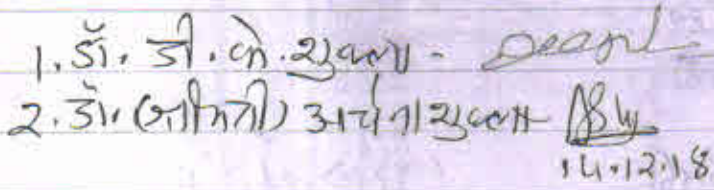 1. डॉ. डी. के. शुक्ला -
2. डॉ. (श्रीमती) अर्चना शुक्ला
14.12.18